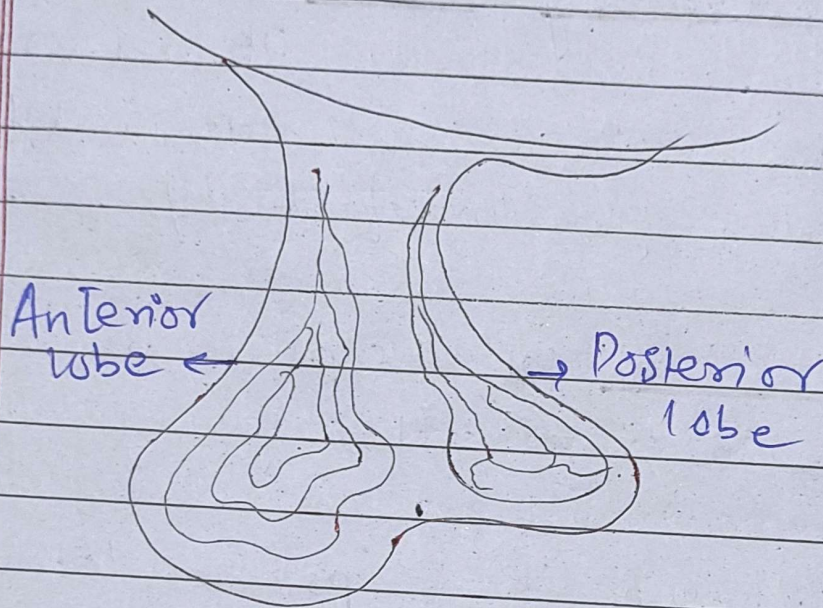 Anterior
lobe
Posterior
lobe